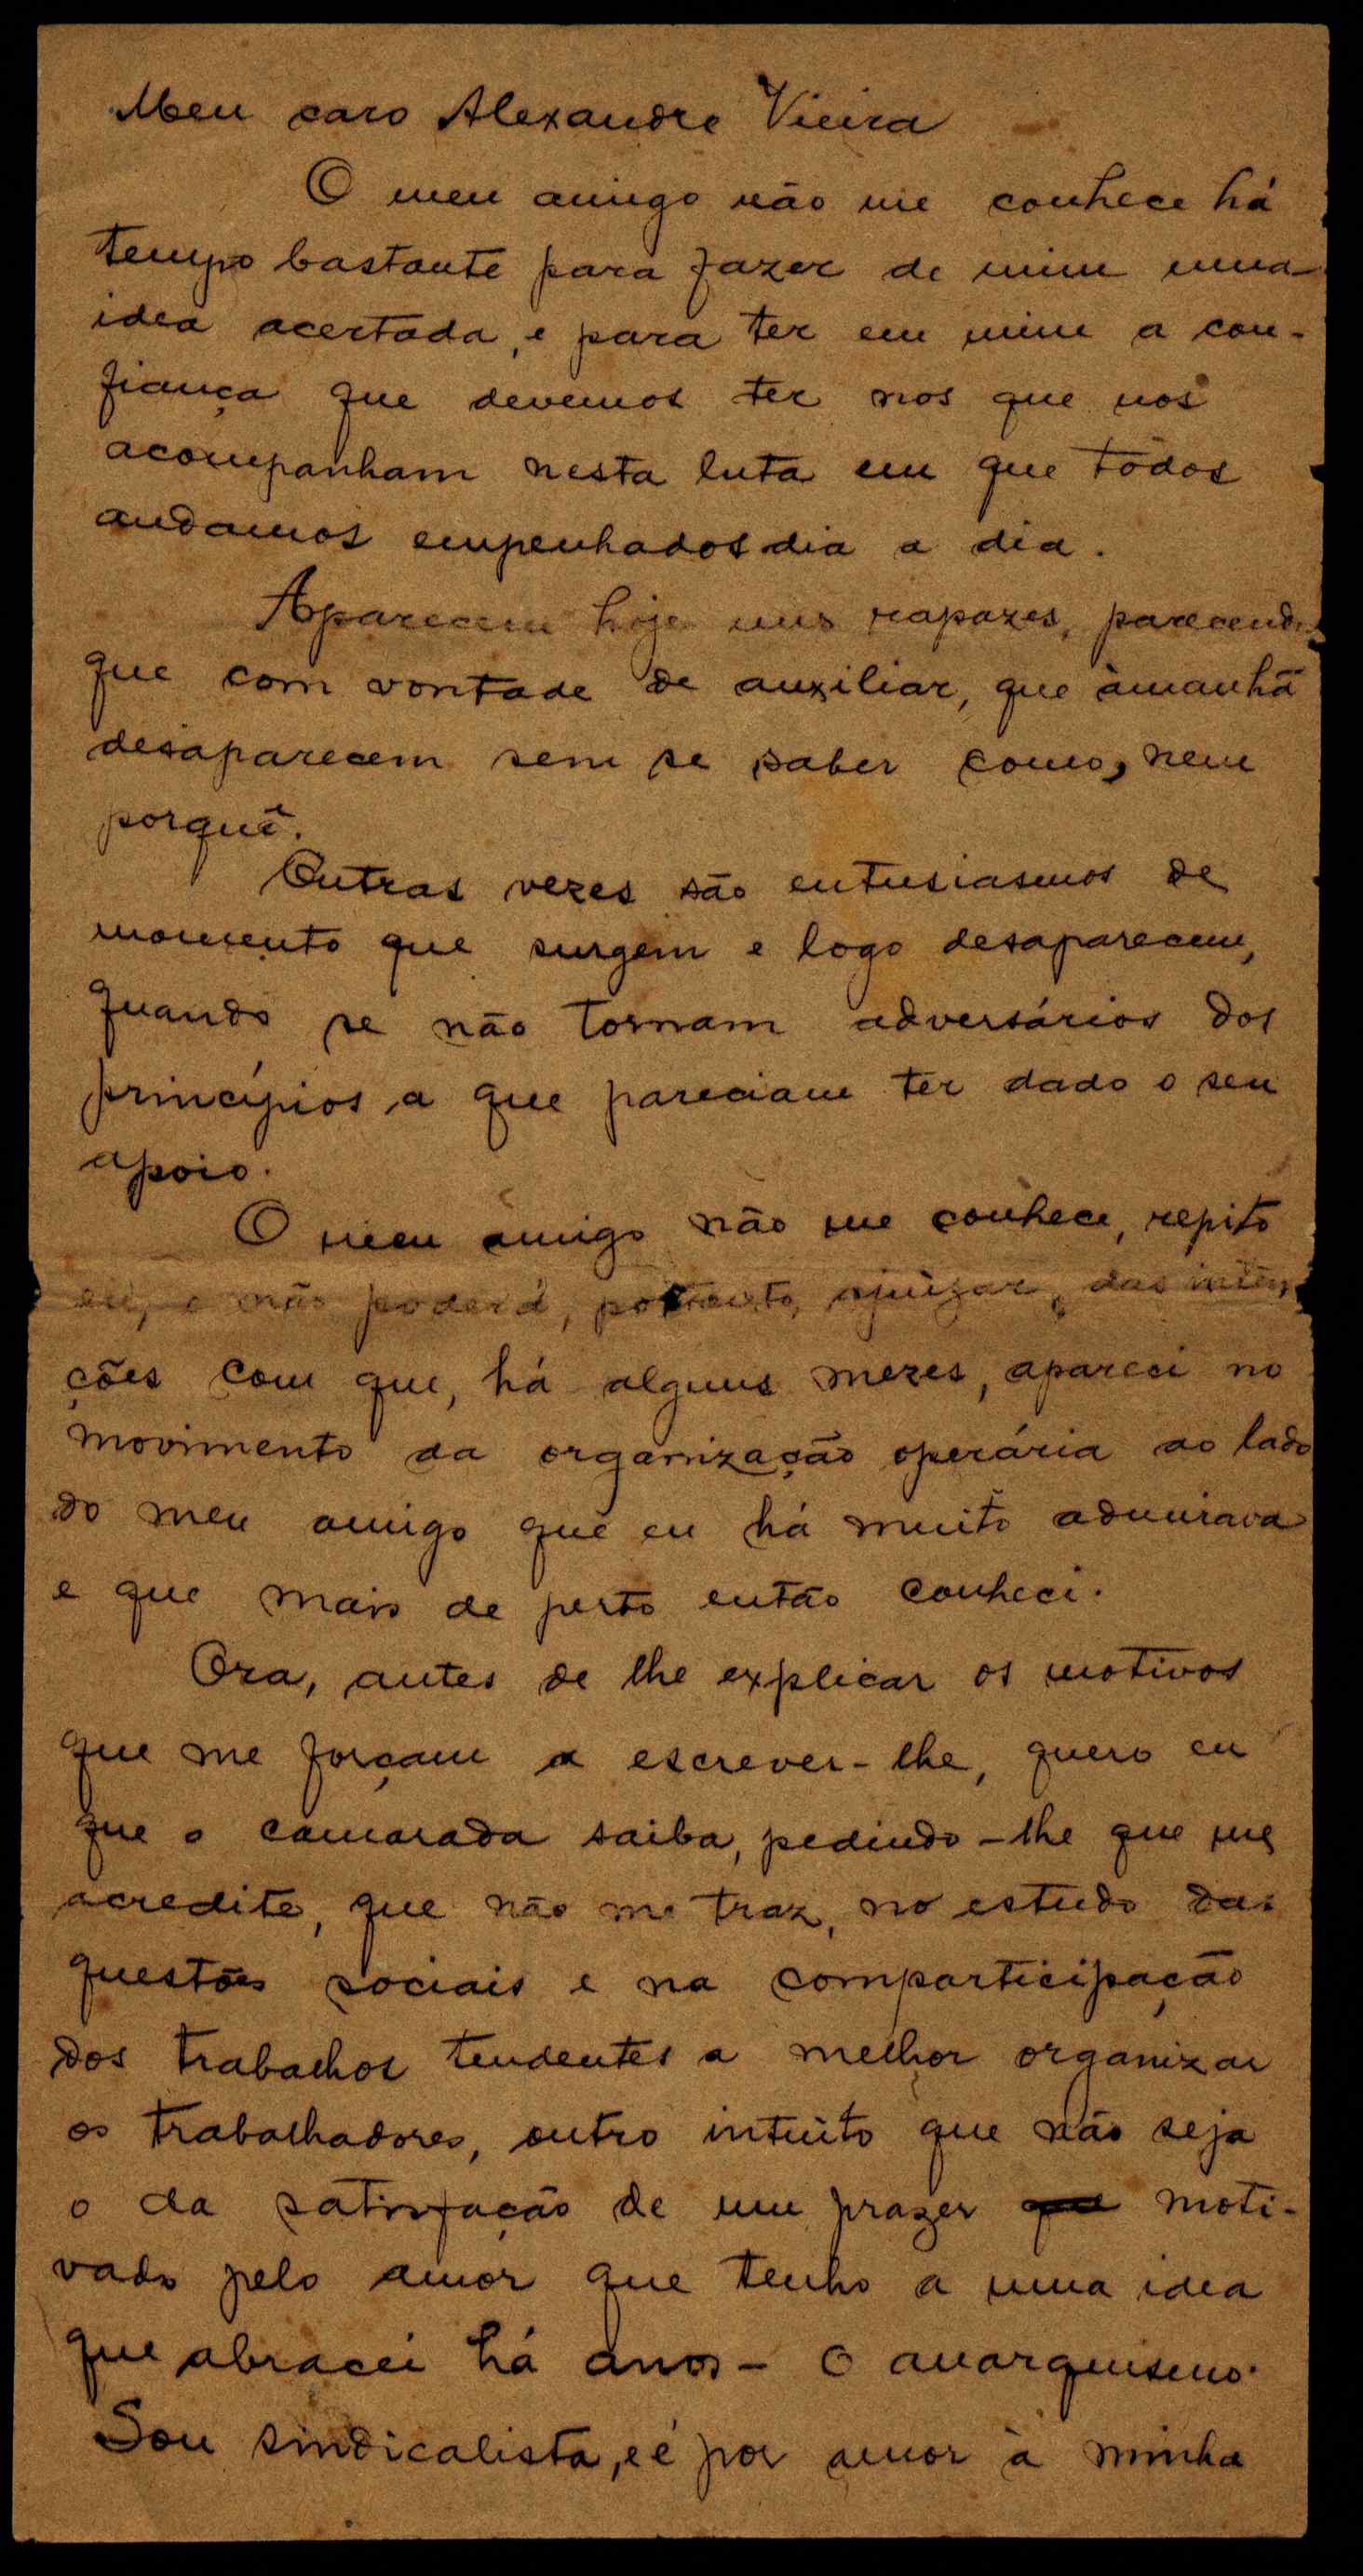 Meu caro Alexandre Vieira
O meu amigo não me conhece há
tempo bastante para fazer de mim uma
idea acertada, e para ter em mim a con-
fiança que devemos ter nos que nos
acompanham nesta luta em que todos
andamos empenhados dia a dia.
Aparecem hoje uns rapazes, parecendo
que com vontade de auxiliar, que àmanhã
desaparecem sem se saber como, nem
porquê.
Outras vezes são entusiasmos de
momento que surgem e logo desaparecem,
quando se não tornam adversários dos
princípios a que pareciam ter dado o seu
apoio.
O meu amigo não me conhece, repito
eu, e não poderá, portanto, ajuizar, das inten-
ções com que, há alguns mezes, apareci no
movimento da organização operária ao lado
do meu amigo que eu há muito admirava
e que mais de perto então conheci.
Ora, antes de lhe explicar os motivos
que me forçam a escrever-lhe, quero eu
que o camarada saiba, pedindo-lhe que me
acredite, que não me traz, no estudo das
questões sociais e na comparticipação
dos trabalhos tendentes a melhor organizar
os trabalhadores, outro intúito que não seja
o da satisfação de um prazer que moti-
vado pelo amor que tenho a uma idea
que abracei há anos - O anarquismo.
Sou sindicalista, e é por amor à minha